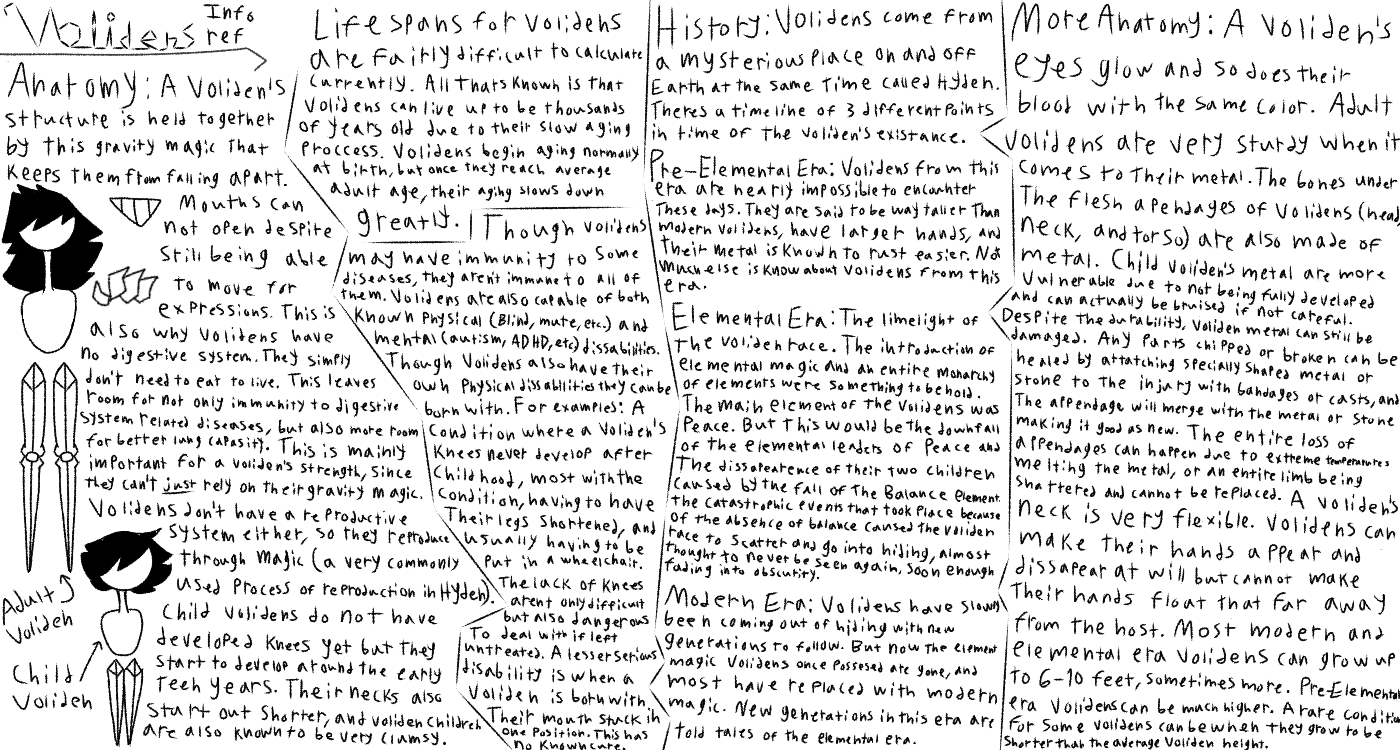 Volidens
Info
ref
Anatomy: A Voliden's
structure is held together
by this gravity magic that
keeps them from falling apart.
Mouths can
not open despite
still being able
to move for
expressions. This is
also why Volidens have
no digestive system. They simply
don't need to eat to live. This leaves
room for not only immunity to digestive
system related diseases, but also more room
for better lung capasity. This is mainly
important for a Voliden's strength, since
they can't just rely on their gravity magic.
Volidens don't have a reproductive
system either, so they reproduce
through magic (a very commonly
used process of reproduction in Hyden).
Child Volidens do not have
developed knees yet but they
start to develop around the early
teen years. Their necks also
start out shorter, and voliden children
are also known to be very clumsy.
Adult
Voliden
Child
Voliden
Life spans for Volidens
are fairly difficult to calculate
currently. All thats known is that
Volidens can live up to be thousands
of years old due to their slow aging
proccess. Volidens begin aging normally
at birth, but once they reach average
adult age, their aging slows down
greatly.
Though volidens
may have immunity to some
diseases, they arent immune to all of
them. Volidens are also capable of both
known physical (Blind, mute, etc.) and
mental (autism, ADHD, etc) dissabilities.
Though Volidens also have their
own physical dissabilities they can be
born with. For examples: A
condition where a Voliden's
knees never develop after
childhood, most with the
condition, having to have
their legs shortened, and
usually having to be
put in a wheelchair.
The lack of knees
arent only difficult
but also dangerous
to deal with if left
untreated. A lesser serious
disability is when a
Voliden is born with
their mouth stuck in
one position. This has
no known cure.
History: Volidens come from
a mysterious place on and off
Earth at the same time called Hyden.
Theres a timeline of 3 different points
in time of the Voliden's existance.
Pre-Elemental Era: Volidens from this
era are nearly impossible to encounter
these days. They are said to be way taller than
modern volidens, have larger hands, and
their metal is known to rust easier. Not
much else is know about Volidens from this
era.
Elemental Era: The limelight of
the voliden race. The introduction of
elemental magic and an entire monarchy
of elements were something to behold.
The main element of the Volidens was
Peace. But this would be the downfall
of the elemental leaders of Peace and
the dissapearence of their two children
caused by the fall of the Balance element.
The catastrophic events that took place because
of the absence of balance caused the Voliden
race to scatter and go into hiding, almost
thought to never be seen again, soon enough
fading into obscurity.
Modern Era: Volidens have slowly
been coming out of hiding with new
generations to follow. But now the element
magic Volidens once possesed are gone, and
most have replaced with modern
magic. New generations in this era are
told tales of the elemental era.
More Anatomy: A Voliden's
eyes glow and so does their
blood with the same color. Adult
Volidens are very sturdy when it
comes to their metal. The bones under
the flesh apendages of Volidens (head,
neck, and torso) are also made of
metal. Child Voliden's metal are more
vulnerable due to not being fully developed
and can actually be bruised if not careful.
Despite the durability, Voliden metal can still be
damaged. Any parts chipped or broken can be
healed by attatching specially shaped metal or
stone to the injury with bandages or casts, and
the appendage will merge with the metal or stone
making it good as new. The entire loss of
appendages can happen due to extreme temperatures
melting the metal, or an entire limb being
shattered and cannot be replaced. A Voliden's
neck is very flexible. Volidens can
make their hands appear and
dissapear at will but cannot make
their hands float that far away
from the host. Most modern and
elemental era Volidens can grow up
to 6-10 feet, sometimes more. Pre-Elemental
era Volidens can be much higher. A rare condition
for some volidens can be when they grow to be
shorter than the average Voliden height.